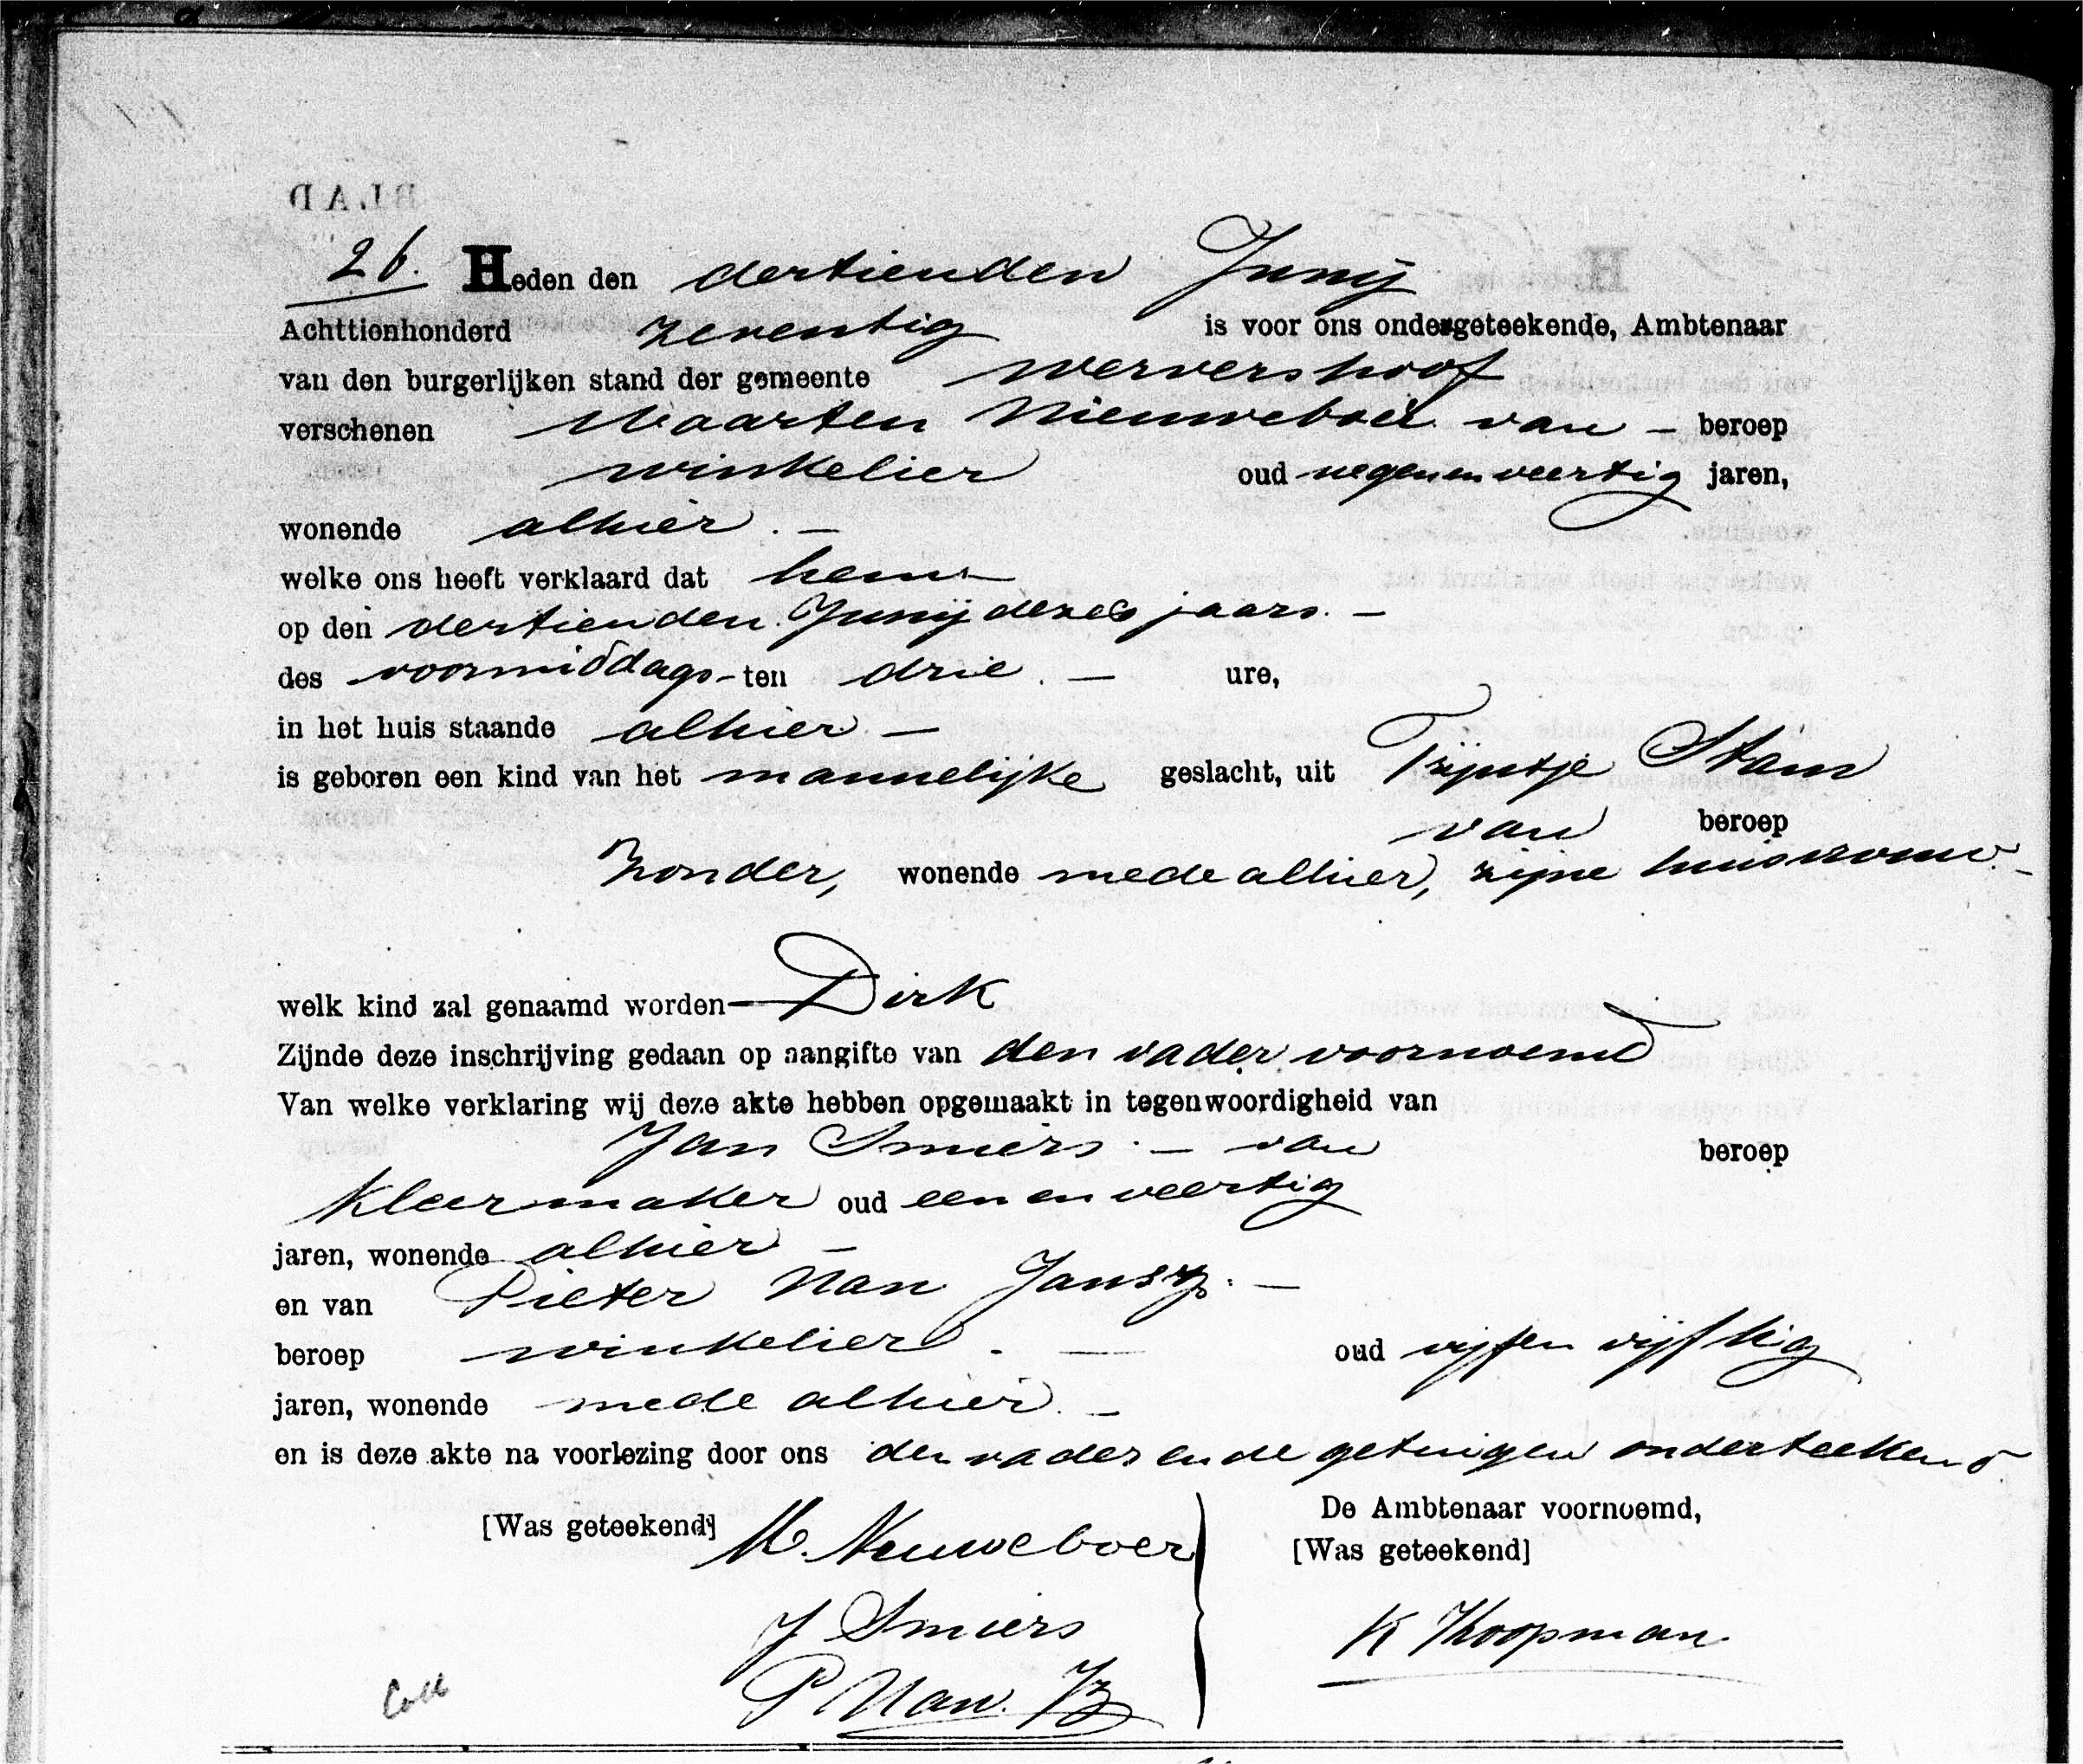 26. Heden den dertienden Junij
Achttienhonderd zeventig is voor ons ondergeteekende, Ambtenaar
van den burgerlijken stand der gemeente Wervershoof
verschenen Maarten Nieuweboer van – beroep
winkelier oud negen en veertig jaren,
wonende alhier. –
welke ons heeft verklaard dat hem –
op den dertienden Junij dezes jaars. –
des voormiddags - ten drie. – ure,
in het huis staande alhier –
is geboren een kind van het mannelijke geslacht, uit Trijntje Stam
van beroep
Zonder, wonende mede alhier, zijne huisvrouw. –
welk kind zal genaamd worden – Dirk
Zijnde deze inschrijving gedaan op aangifte van den vader voornoemd
Van welke verklaring wij deze akte hebben opgemaakt in tegenwoordigheid van
Jan Smiers – van beroep
Kleermaker oud een en veertig
jaren, wonende alhier –
en van Pieter Nan Jansz. –
beroep winkelier. – oud vijf en vijftig
jaren, wonende mede alhier. –
en is deze akte na voorlezing door ons den vader en de getuigen onderteekend.
[Was geteekend] M. Nieuweboer
J Smiers
P Nan. Jz
De Ambtenaar voornoemd,
[Was geteekend]
K Koopman
Coll